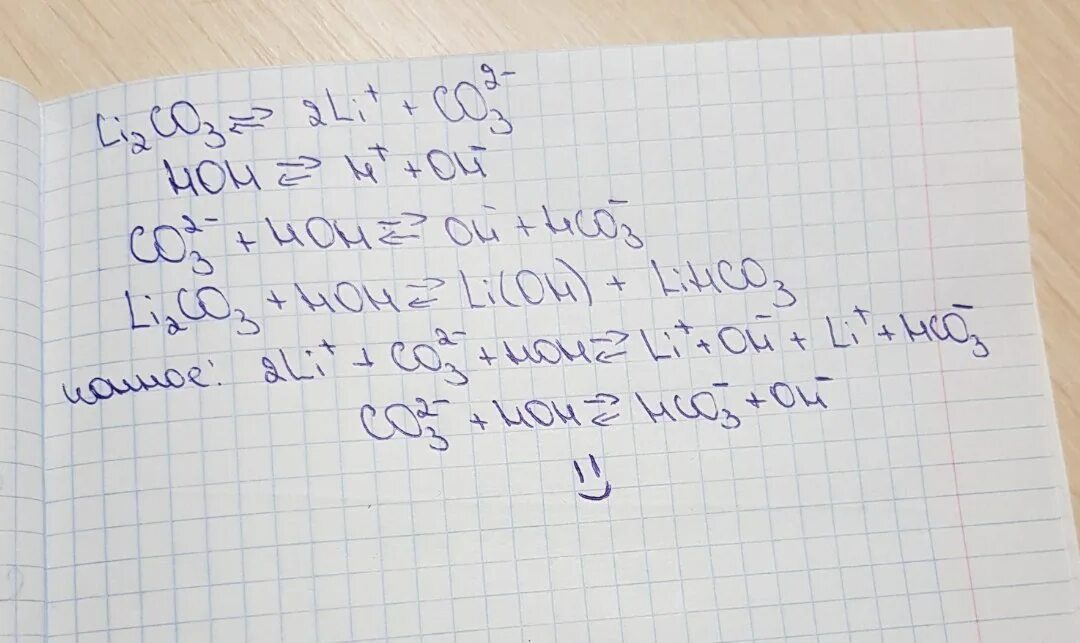 Li₂CO₃ ⇌ 2Li⁺ + CO₃²⁻
HOH ⇌ H⁺ + OH⁻
CO₃²⁻ + HOH ⇌ OH⁻ + HCO₃⁻
Li₂CO₃ + HOH ⇌ Li(OH) + LiHCO₃
ионное: 2Li⁺ + CO₃²⁻ + HOH ⇌ Li⁺ + OH⁻ + Li⁺ + HCO₃⁻
CO₃²⁻ + HOH ⇌ HCO₃⁻ + OH⁻